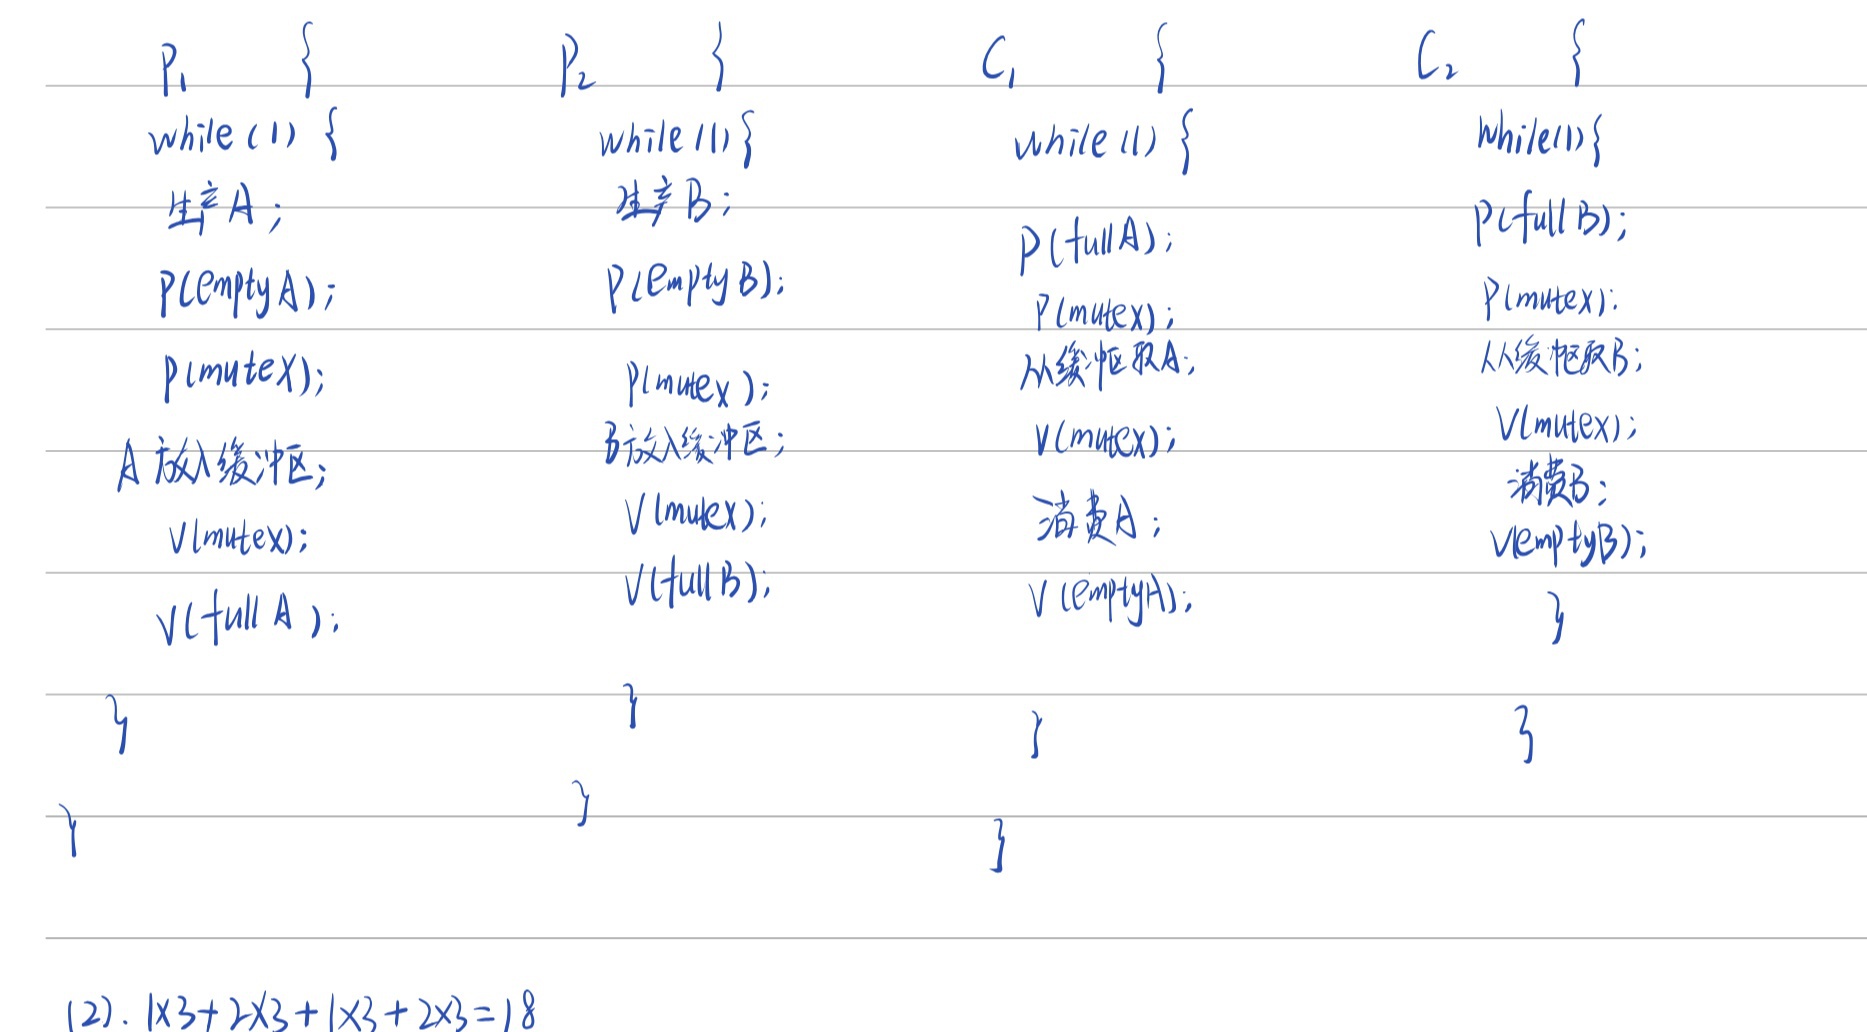 P₁ {
while(1) {
生产A;
P(emptyA);
P(mutex);
A放入缓冲区;
V(mutex);
V(fullA);
}
}
P₂ {
while(1){
生产B;
P(emptyB);
P(mutex);
B放入缓冲区;
V(mutex);
V(fullB);
}
}
C₁ {
while(1) {
P(fullA);
P(mutex);
从缓冲区取A;
V(mutex);
消费A;
V(emptyA);
}
}
C₂ {
while(1){
P(fullB);
P(mutex);
从缓冲区取B;
V(mutex);
消费B;
V(emptyB);
}
}
(2). 1×3+2×3+1×3+2×3=18